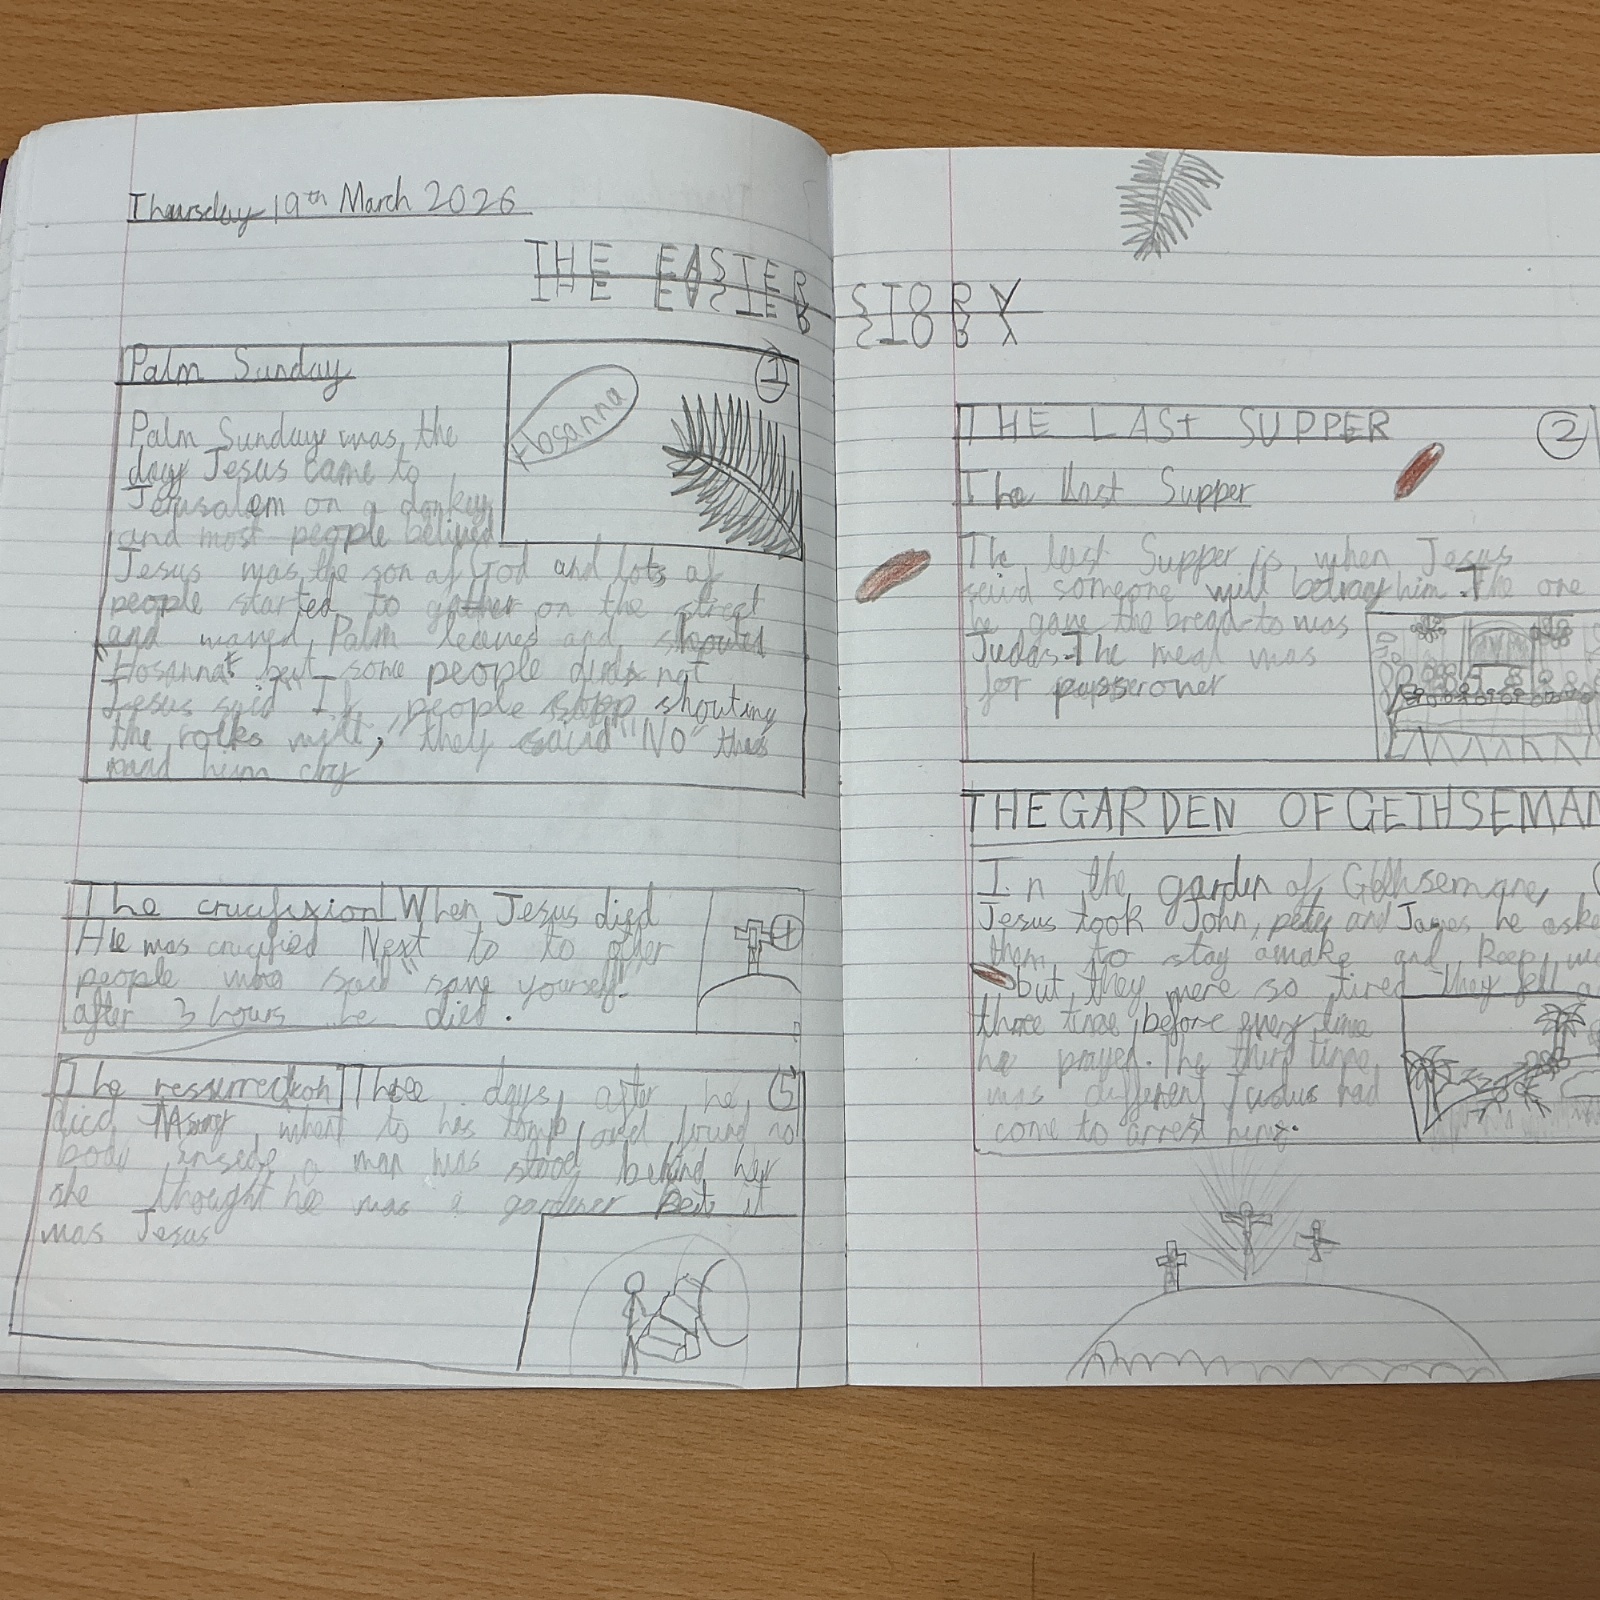 Thursday 19th March 2026
THE EASTER STORY
Palm Sunday
1
Hosanna
Palm Sunday was the
day Jesus came to
Jerusalem on a donkey
and most people belived
Jesus was the son of God and lots of
people started to gather on the street
and waved Palm leaves and shouted
Hosanna but some people did not
Jesus said If people stopp shouting
the rocks will, they said "No" this
mad him cry
The crucifixion When Jesus died
4
He was crucified Next to to other
people who said "save yourself.
after 3 hours he died.
The ressurrection Three days after he
5
died Mary whent to his tomb and found no
body inside a man was stood behind her
she thought he was a gardner But it
was Jesus
THE LAST SUPPER
2
The Last Supper
The last Supper is when Jesus
said someone will betray him. The one
he gave the bread to was
Judas. The meal was
for passerover
THE GARDEN OF GETHSEMAN
In the garden of Gethsemane,
Jesus took John, peter and James he aske
them to stay awake and keep
but they were so tired They fell
three time before every time
he prayed. The third time
was different Judus had
come to arrest him.